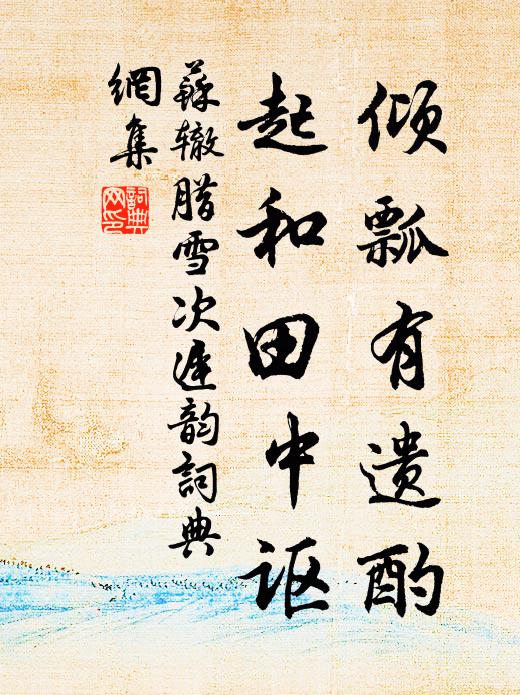 倾瓢有遗酌
起和田中讴
蘇辙腊雪次遲韵詞典
網集
詞典
网印